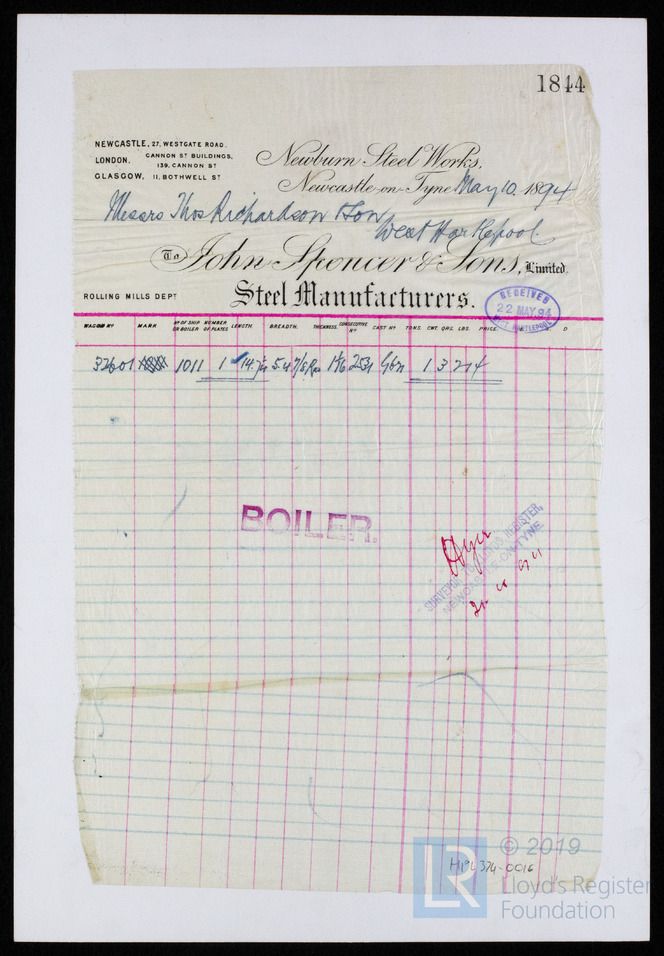 1844
NEWCASTLE, 27, WESTGATE ROAD.
LONDON. CANNON ST BUILDINGS, 139, CANNON ST
GLASGOW, 11, BOTHWELL ST
Newburn Steel Works,
Newcastle-on-Tyne May 10 1894
Messrs Thos Richardson & Son
West Hartlepool
To John Spencer & Sons, Limited.
ROLLING MILLS DEPT
Steel Manufacturers.
RECEIVED
22 MAY. 94
WEST HARTLEPOOL
WAGON No MARK No OF SHIP OR BOILER NUMBER OF PLATES LENGTH. BREADTH. THICKNESS. CONSECUTIVE No CAST No TONS. CWT. QRS. LBS. PRICE. S. D
32601 1011 1 1 3 24
BOILER.
SURVEYOR TO LLOYD'S REGISTER,
NEWCASTLE-ON-TYNE
HPL374-0016
LR © 2019
Lloyd's Register
Foundation